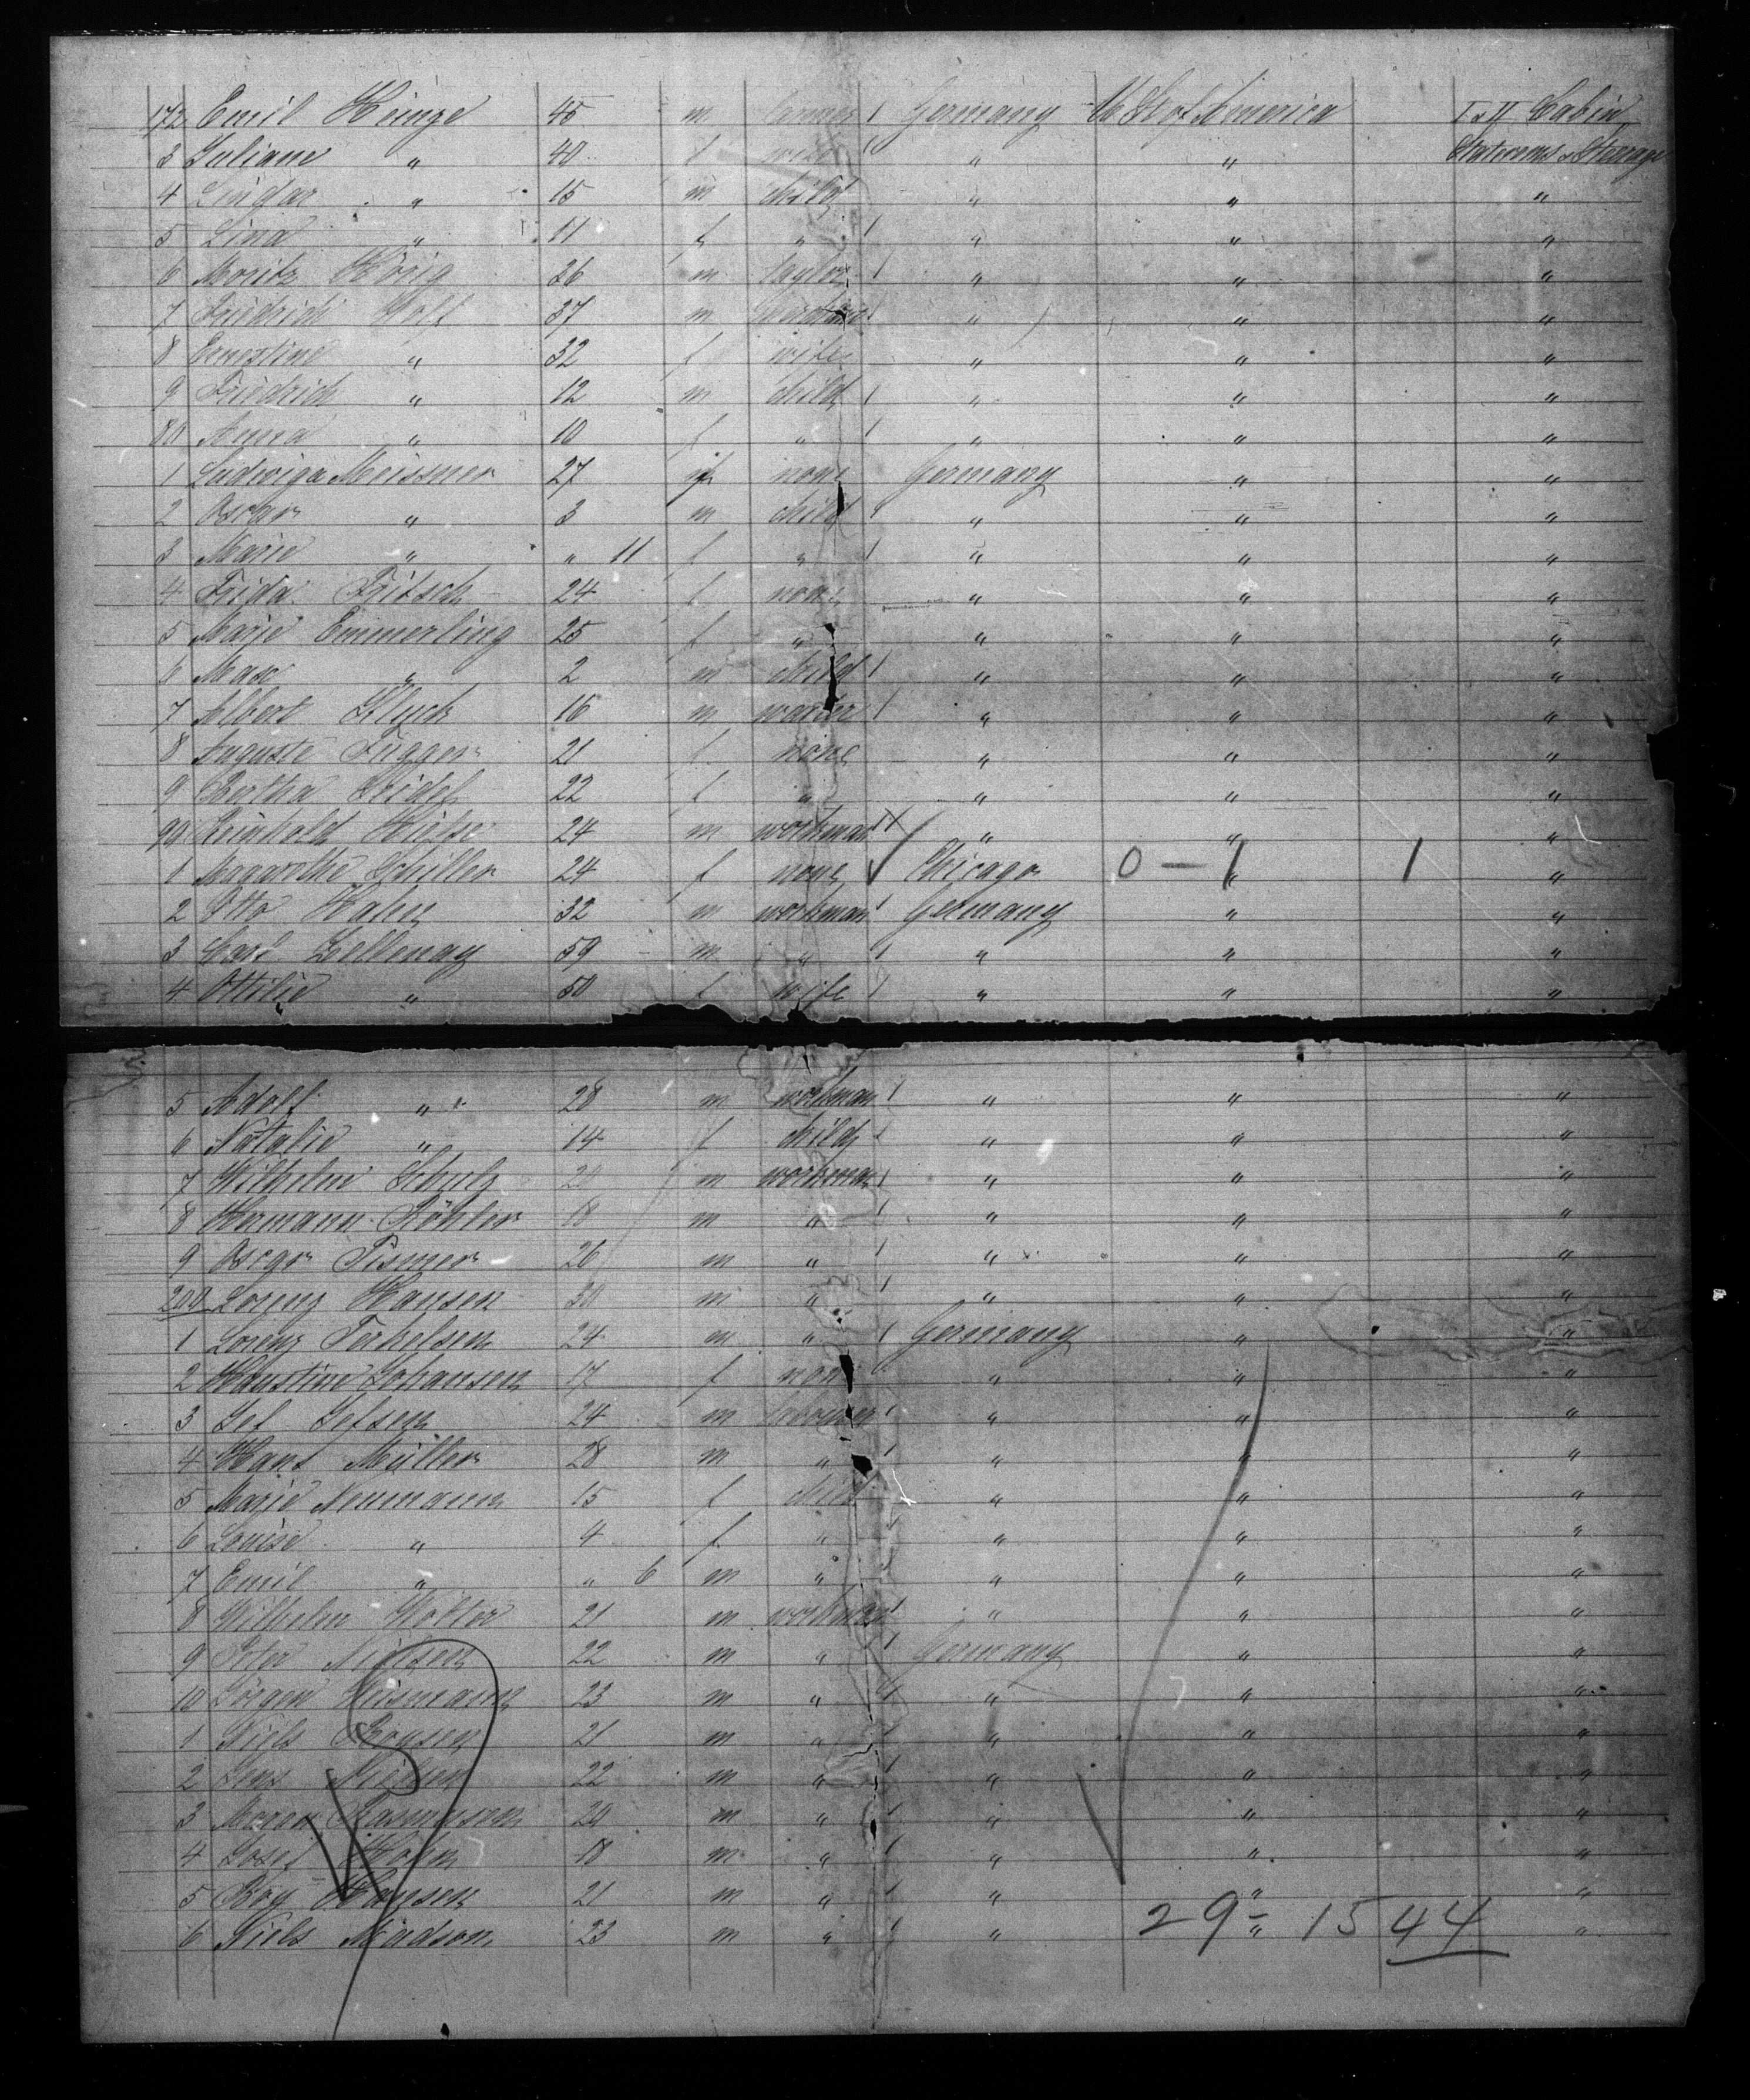 172 Emil Heinze 45 m farmer Germany U St of America I & II Cabin
3 Juliane " 40 f wife " " Staterooms & Steerage
4 " 15 m child " " "
5 Lina " 11 f " " " "
6 Moritz Hörig 36 m taylor " " "
7 Friedrich Wolf 37 m " " "
8 Ernestine " 32 f wife " " "
9 Friedrich " 12 m child " " "
80 Anna " 10 f " " " "
1 Ludwiga Meissner 27 f none Germany " "
2 Oscar " 3 m child " " "
3 Marie " " 11 f " " " "
4 Frida Fritsch 24 f none " " "
5 Marie Emmerling 25 f " " " "
6 Max " 2 m child " " "
7 Albert Kluck 16 m waiter " " "
8 Auguste Fugger 21 f none " " "
9 Bertha 22 f " " " "
90 Reinhold 24 m workman " " "
1 Magarethe Schiller 24 f none Chicago 0 – 1 " 1 "
2 Otto Hahn 32 m workman Germany " "
3 Carl Zellenay 59 m " " " "
4 Ottilie " 50 f wife " " "
5 Adolf " 28 m workman " " "
6 Natalie " 14 f child " " "
7 Wilhelm Schulz 20 m workman " " "
8 Hermann Köhler 18 m " " " "
9 Oscar Tismer 26 m " " " "
200 Lorenz Hansen 30 m " " " "
1 Lorenz Terkelsen 24 m " Germany " "
2 Johansen 17 f none " " "
3 Jef Jefsen 24 m labourer " " "
4 Hans Müller 28 m " " " "
5 Marie Neumann 15 f child " " "
6 Louise " 4 f " " " "
7 Emil " " 6 m " " " "
8 Wilhelm Wolter 21 m workman " " "
9 Peter Nielsen 22 m " Germany " "
10 Jörgen 23 m " " " "
1 Niels Boysen 21 m " " " "
2 Jens Nielsen 22 m " " " "
3 Rasmussen 20 m " " " "
4 Josef Holm 18 m " " " "
5 Boy Hansen 21 m " " " "
6 Niels Madson 23 m " " " "
29 – 15 44